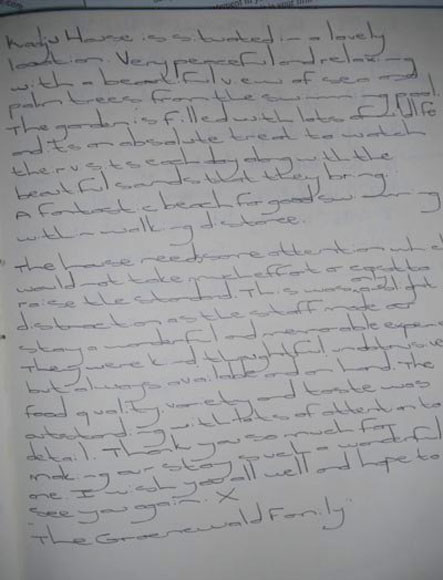 Kadju House is situated in a lovely
location. Very peaceful and relaxing
with a beautiful view of sea and
palm trees from the swimming pool.
The garden is filled with lots of wildlife
and its an absolute treat to watch
their visits each day along with the
beautiful sounds that they bring.
A fantastic beach for good swimming
within walking distance.
The house needs some attention which
would not take much effort or cost to
raise the standard. This was a slight
distraction as the staff made our
stay a wonderful and memorable experience
They were kind, thoughtful, unobtrusive
but always available and on hand. The
food quality, variety and taste was
outstanding with lots of attention to
detail. Thank you so much for
making our stay such a wonderful
one. I wish you all well and hope to
see you again. X
The Groenewald Family